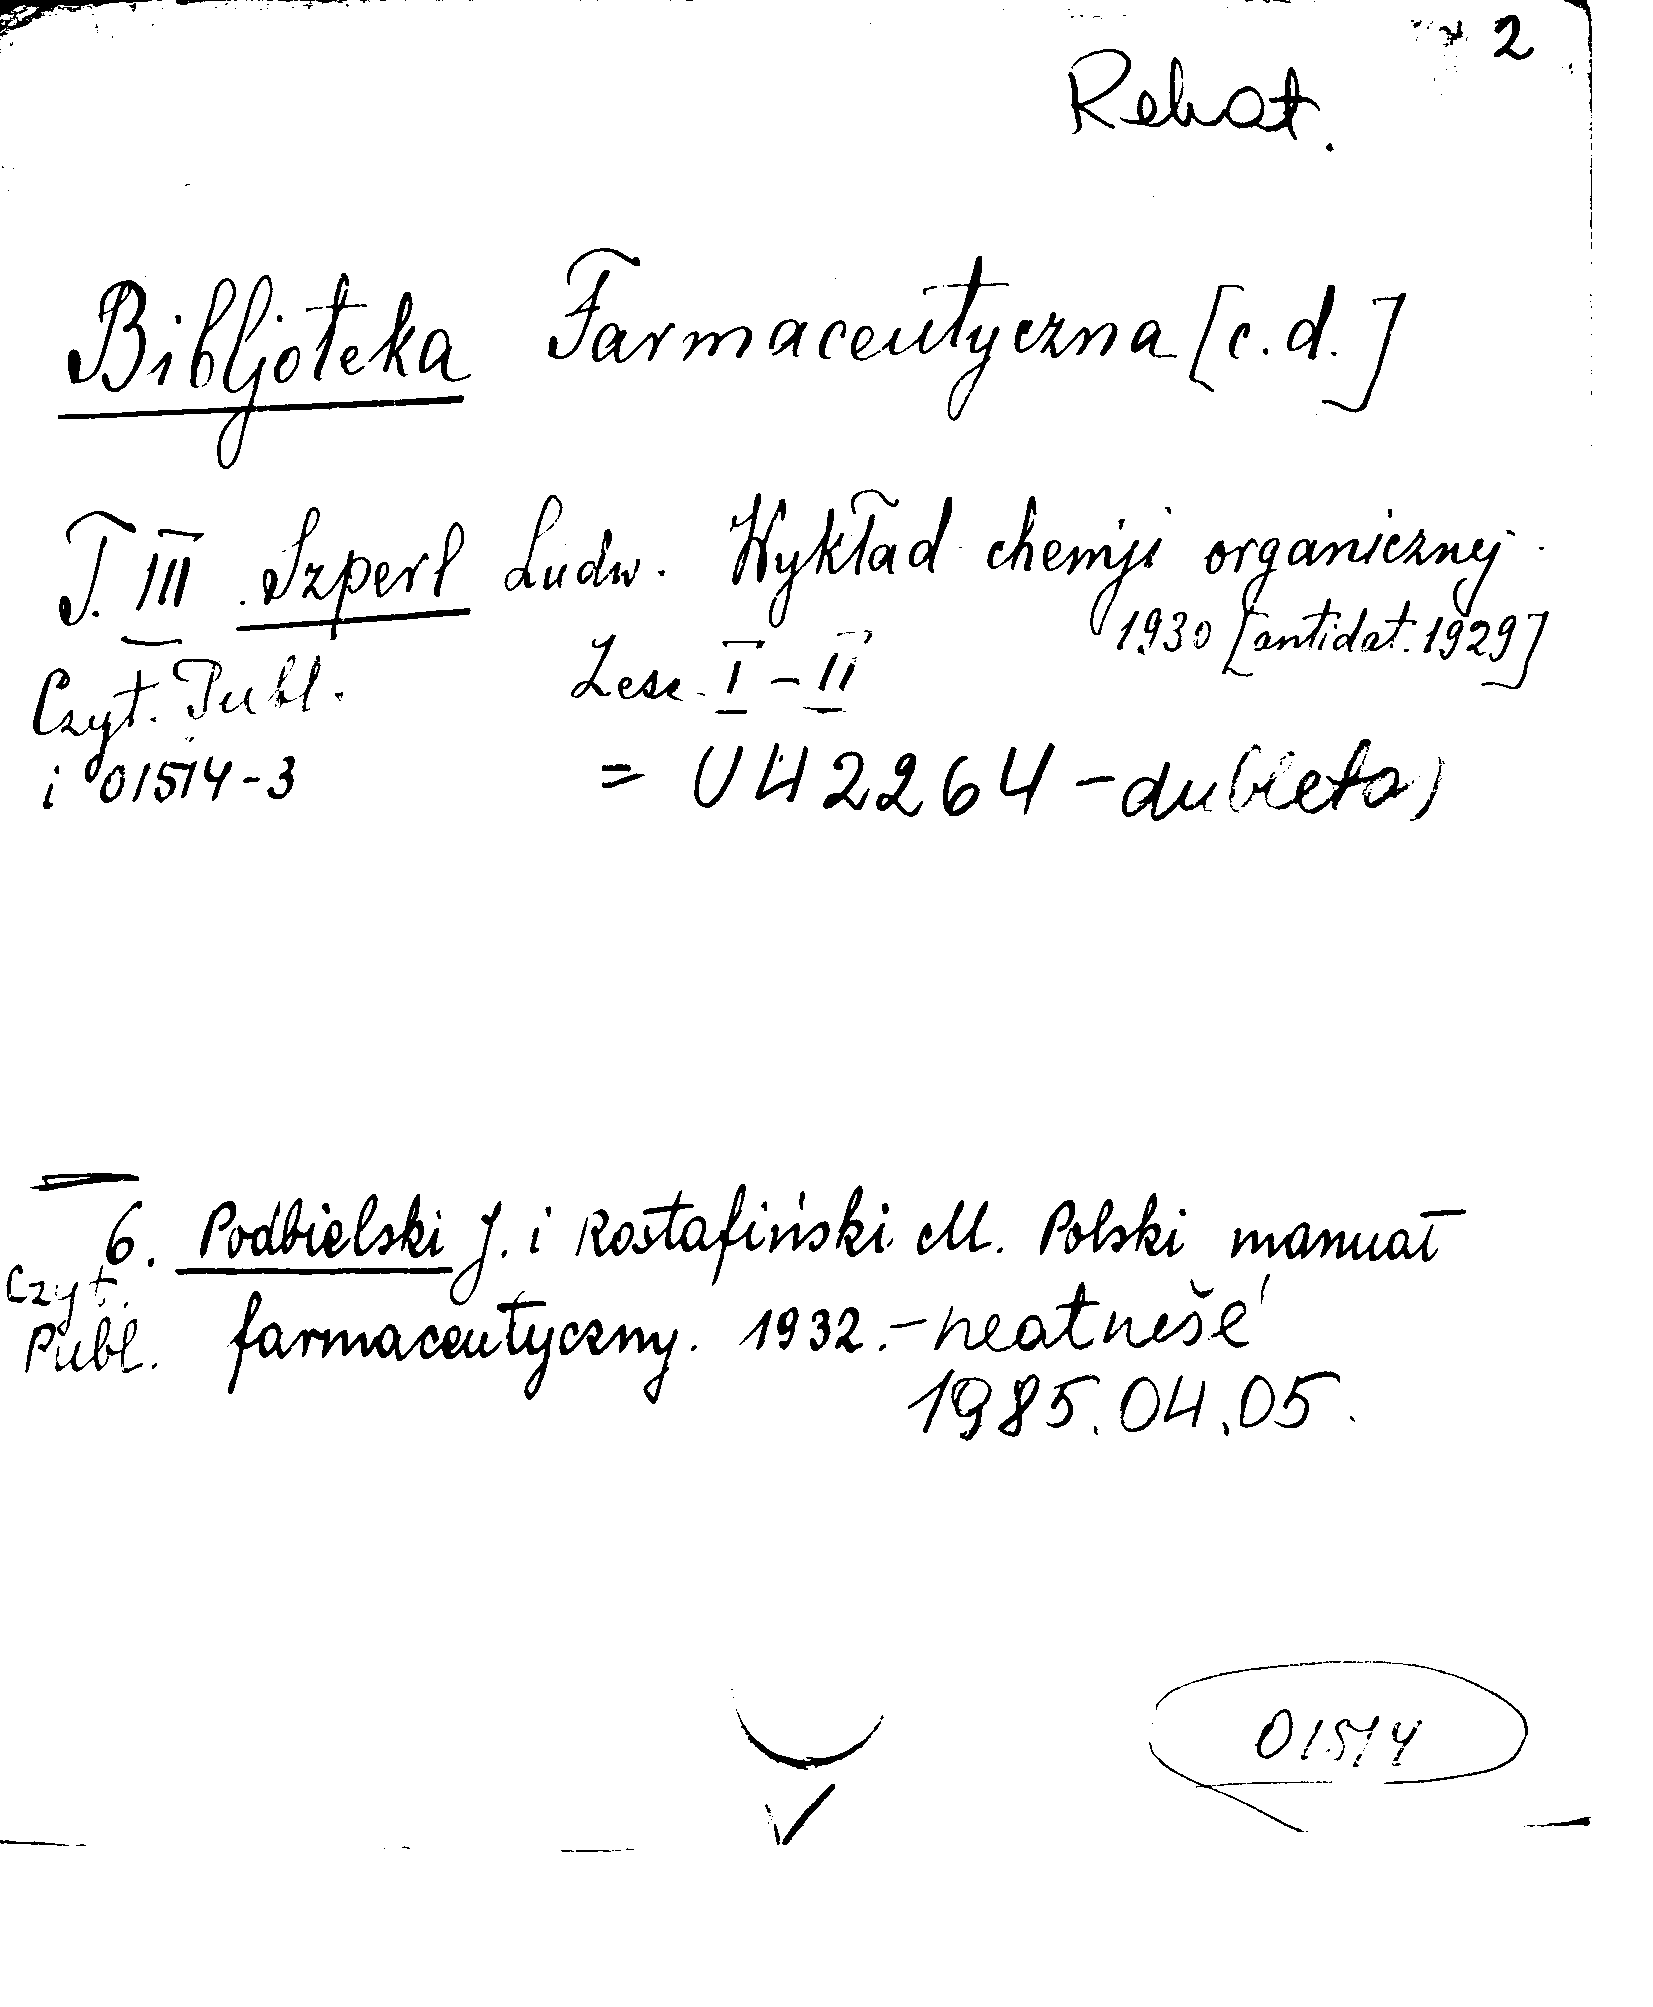 2
Rekat.
Bibljoteka Farmaceutyczna [c.d.]
T. III Szperl Ludw. Wykład chemji organicznej.
1930 [antidat. 1929]
Czyt. Publ. Zesz. I – II
i 01514-3 = U42264 – dubleta)
6. Podbielski J. i Rostafiński M. Polski manuał
Czyt.
Publ. farmaceutyczny. 1932. – neatnešė
1985.04.05.
01514